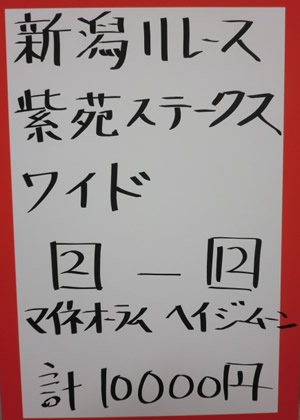 新潟11レース
紫苑ステークス
ワイド
2 — 12
マイネオーラム ヘイジームーン
計10000円